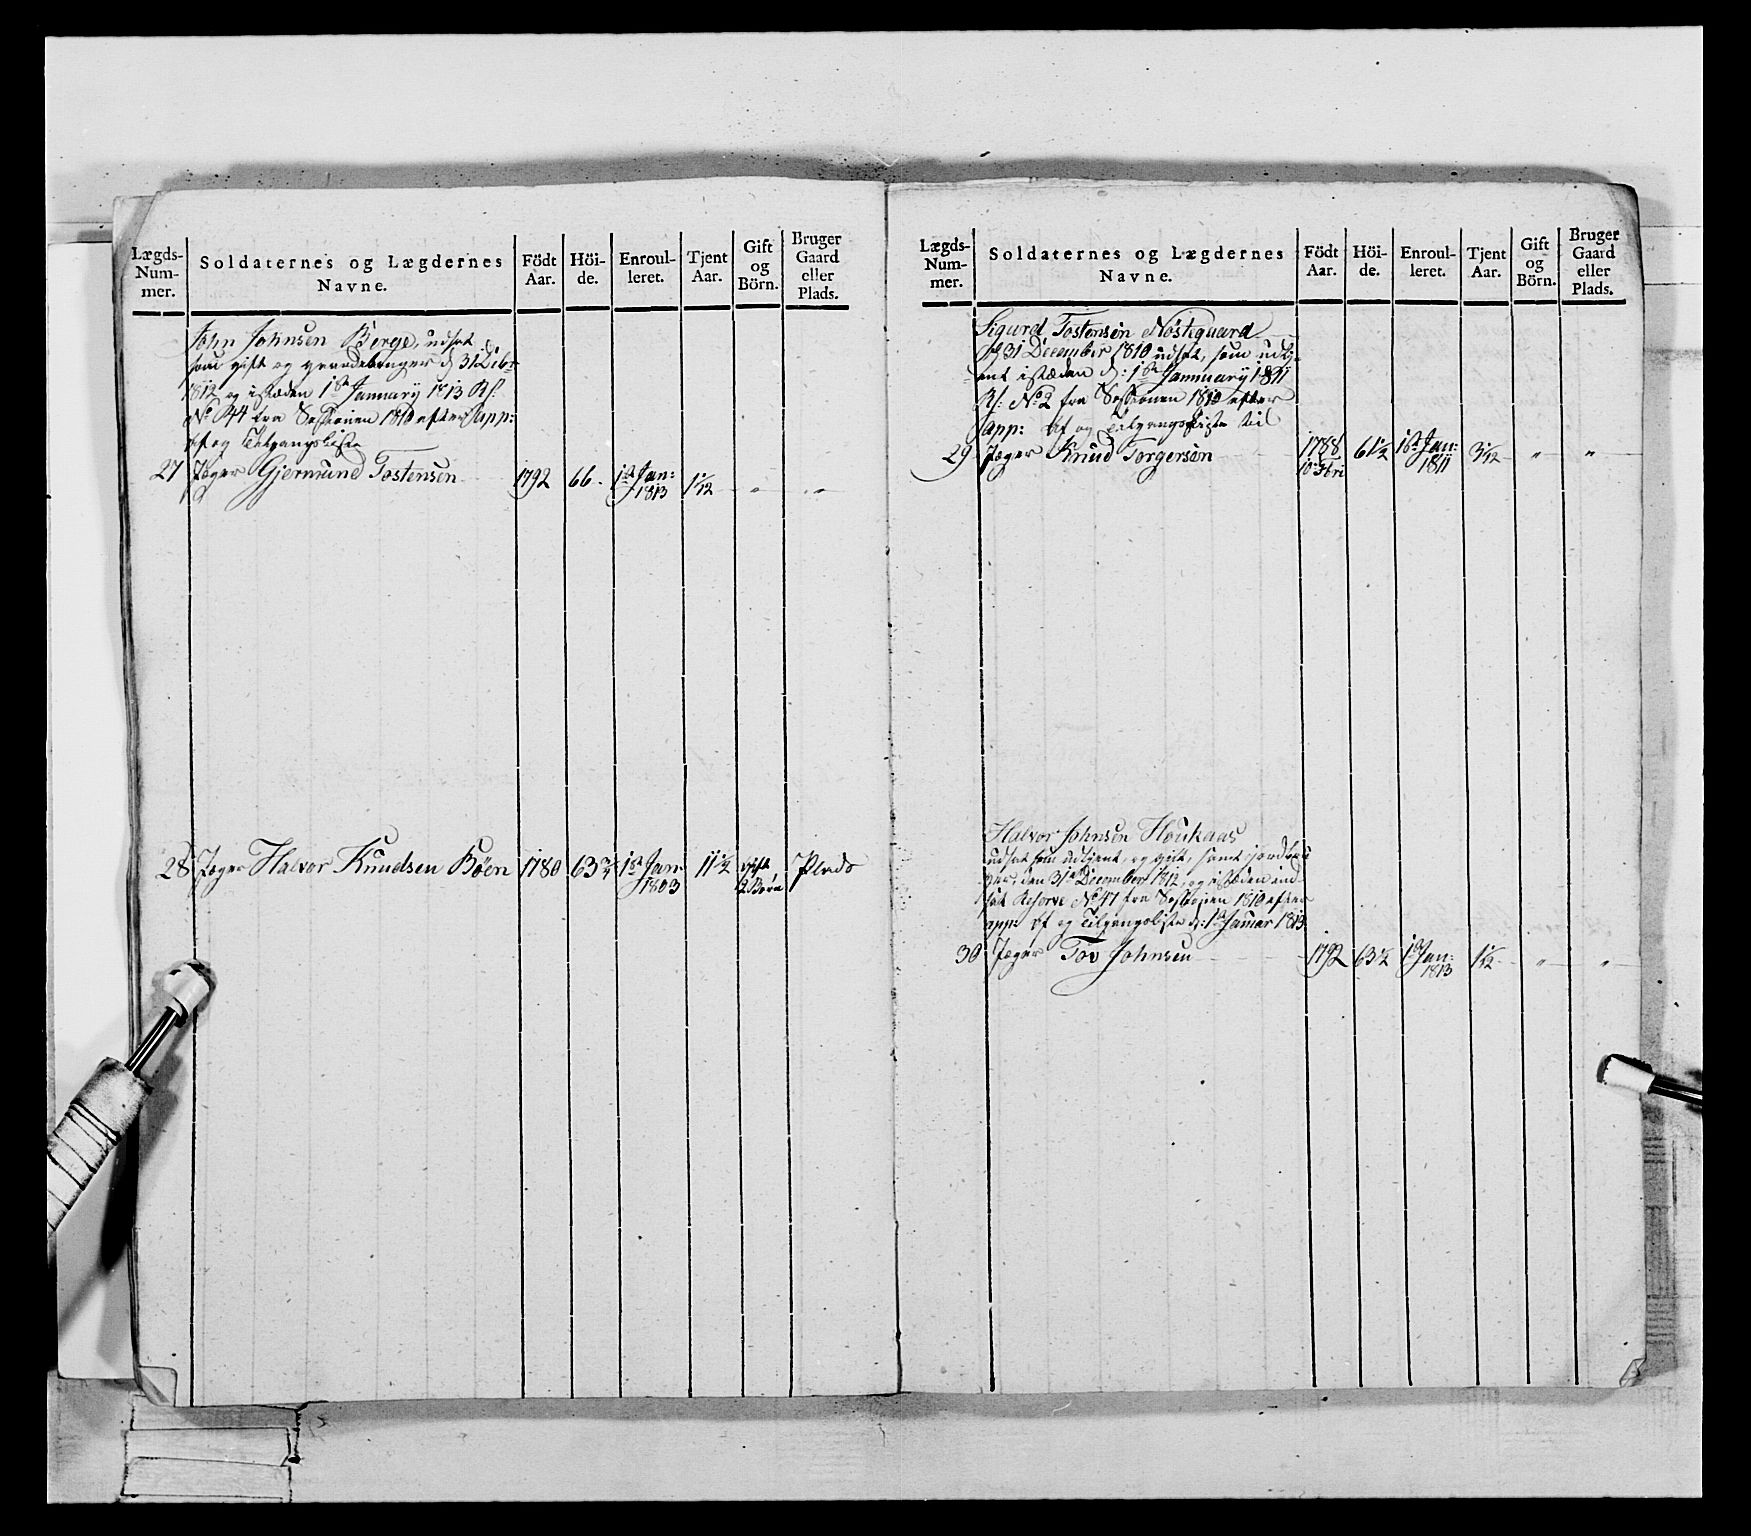 Lægds-
Num-
mer.
Soldaternes og Lægdernes
Navne.
Födt
Aar.
Höi-
de.
Enroul-
leret.
Tjent
Aar.
Gift
og
Börn.
Bruger
Gaard
eller
Plads.
John Johnsen Berge, udsat
som gift og d 31 Dcbr
1812 og istæden 1ste January 1813 Rs.
No 244 fra Sessionen 1810 efter app:
Af og Tilgangsliste
27 Jæger Gjermund Tostensen 1792 66 1ste Jan: 1813 1 1/12 " "
28 Jæger Halvor Knudsen Böen 1780 63 3/4 1ste Jan: 1803 11 1/2 gift 2 Börn Plads
Lægds-
Num-
mer.
Soldaternes og Lægdernes
Navne.
Födt
Aar.
Höi-
de.
Enroul-
leret.
Tjent
Aar.
Gift
og
Börn.
Bruger
Gaard
eller
Plads.
Sigurd Tostensen Nöstegaard
d 31 December 1810 udsat, som udtj-
ent istæden d: 1ste Januarij 1811
Rs: No 2 fra Sessionen 1810 efter
app: Af og Tilgangsliste til
29 Jæger Knud Torgersen 1788 61 1/2 1ste Jan: 1811 3 1/12 " "
Halvor Johnsen Houkaas
udsat som udtjent, og gift, samt jordbru
ger, den 31te December 1812, og istæden ind-
sat Reserve No 47 fra Sessionen 1810 efter
app: Af og Tilgangsliste d: 1ste Januar 1813
30 Jæger Tov Johnsen 1792 63 1/2 1ste Jan: 1813 1 1/12 " "